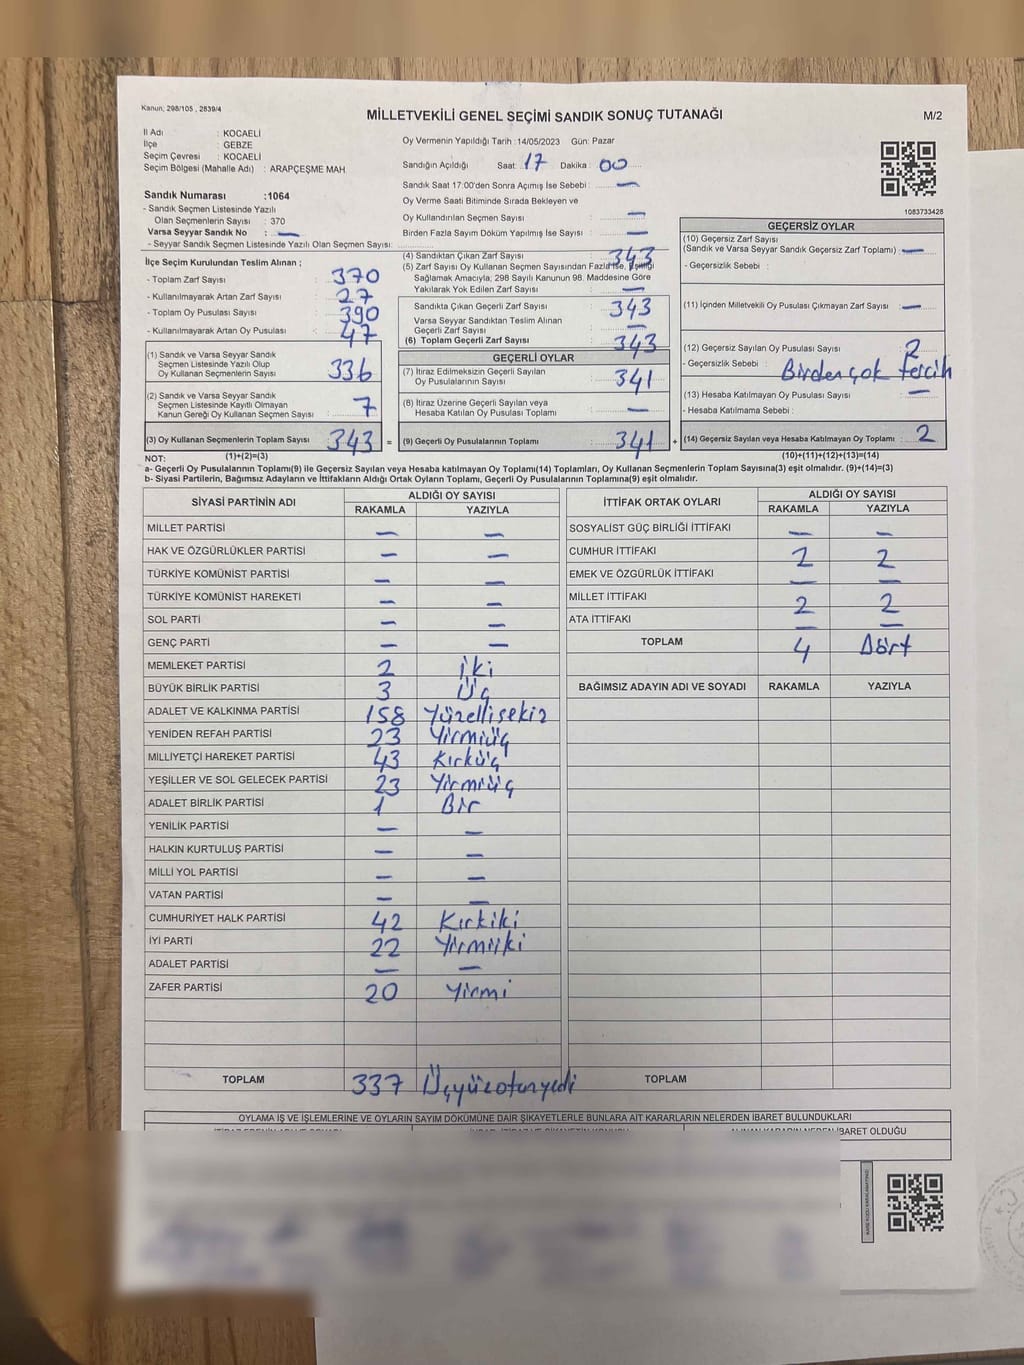 Kanun, 298/105 , 2839/4
MİLLETVEKİLİ GENEL SEÇİMİ SANDIK SONUÇ TUTANAĞI
M/2
İl Adı : KOCAELİ
İlçe : GEBZE
Seçim Çevresi : KOCAELİ
Seçim Bölgesi (Mahalle Adı) : ARAPÇEŞME MAH.
Sandık Numarası :1064
- Sandık Seçmen Listesinde Yazılı
Olan Seçmenlerin Sayısı : 370
Varsa Seyyar Sandık No : —
- Seyyar Sandık Seçmen Listesinde Yazılı Olan Seçmen Sayısı:
Oy Vermenin Yapıldığı Tarih :14/05/2023 Gün: Pazar
Sandığın Açıldığı Saat: 17 Dakika : 00
Sandık Saat 17:00'den Sonra Açımış İse Sebebi : —
Oy Verme Saati Bitiminde Sırada Bekleyen ve
Oy Kullandırılan Seçmen Sayısı : —
Birden Fazla Sayım Döküm Yapılmış İse Sayısı : —
1083733428
İlçe Seçim Kurulundan Teslim Alınan ;
- Toplam Zarf Sayısı : 370
- Kullanılmayarak Artan Zarf Sayısı : 27
- Toplam Oy Pusulası Sayısı : 390
- Kullanılmayarak Artan Oy Pusulası : 47
(1) Sandık ve Varsa Seyyar Sandık
Seçmen Listesinde Yazılı Olup
Oy Kullanan Seçmenlerin Sayısı : 336
(2) Sandık ve Varsa Seyyar Sandık
Seçmen Listesinde Kayıtlı Olmayan
Kanun Gereği Oy Kullanan Seçmen Sayısı : 7
(3) Oy Kullanan Seçmenlerin Toplam Sayısı : 343 =
(4) Sandıktan Çıkan Zarf Sayısı : 343
(5) Zarf Sayısı Oy Kullanan Seçmen Sayısından Fazla İse, Eşitliği
Sağlamak Amacıyla, 298 Sayılı Kanunun 98. Maddesine Göre
Yakılarak Yok Edilen Zarf Sayısı : —
Sandıkta Çıkan Geçerli Zarf Sayısı : 343
Varsa Seyyar Sandıktan Teslim Alınan
Geçerli Zarf Sayısı : —
(6) Toplam Geçerli Zarf Sayısı : 343
GEÇERLİ OYLAR
(7) İtiraz Edilmeksizin Geçerli Sayılan
Oy Pusulalarının Sayısı : 341
(8) İtiraz Üzerine Geçerli Sayılan veya
Hesaba Katılan Oy Pusulası Toplamı : —
(9) Geçerli Oy Pusulalarının Toplamı : 341 +
GEÇERSİZ OYLAR
(10) Geçersiz Zarf Sayısı
(Sandık ve Varsa Seyyar Sandık Geçersiz Zarf Toplamı) : —
- Geçersizlik Sebebi :
(11) İçinden Milletvekili Oy Pusulası Çıkmayan Zarf Sayısı : —
(12) Geçersiz Sayılan Oy Pusulası Sayısı : 2
- Geçersizlik Sebebi : Birden çok tercih
(13) Hesaba Katılmayan Oy Pusulası Sayısı : —
- Hesaba Katılmama Sebebi :
(14) Geçersiz Sayılan veya Hesaba Katılmayan Oy Toplamı : 2
NOT: (1)+(2)=(3) (10)+(11)+(12)+(13)=(14)
a- Geçerli Oy Pusulalarının Toplamı(9) ile Geçersiz Sayılan veya Hesaba katılmayan Oy Toplamı(14) Toplamları, Oy Kullanan Seçmenlerin Toplam Sayısına(3) eşit olmalıdır. (9)+(14)=(3)
b- Siyasi Partilerin, Bağımsız Adayların ve İttifakların Aldığı Ortak Oyların Toplamı, Geçerli Oy Pusulalarının Toplamına(9) eşit olmalıdır.
SİYASİ PARTİNİN ADI ALDIĞI OY SAYISI
RAKAMLA YAZIYLA
MİLLET PARTİSİ — —
HAK VE ÖZGÜRLÜKLER PARTİSİ — —
TÜRKİYE KOMÜNİST PARTİSİ — —
TÜRKİYE KOMÜNİST HAREKETİ — —
SOL PARTİ — —
GENÇ PARTİ — —
MEMLEKET PARTİSİ 2 İki
BÜYÜK BİRLİK PARTİSİ 3 Üç
ADALET VE KALKINMA PARTİSİ 158 Yüzellisekiz
YENİDEN REFAH PARTİSİ 23 Yirmiüç
MİLLİYETÇİ HAREKET PARTİSİ 43 Kırküç
YEŞİLLER VE SOL GELECEK PARTİSİ 23 Yirmiüç
ADALET BİRLİK PARTİSİ 1 Bir
YENİLİK PARTİSİ — —
HALKIN KURTULUŞ PARTİSİ — —
MİLLİ YOL PARTİSİ — —
VATAN PARTİSİ — —
CUMHURİYET HALK PARTİSİ 42 Kırkiki
İYİ PARTİ 22 Yirmiiki
ADALET PARTİSİ — —
ZAFER PARTİSİ 20 Yirmi
TOPLAM 337 Üçyüzotuzyedi
İTTİFAK ORTAK OYLARI ALDIĞI OY SAYISI
RAKAMLA YAZIYLA
SOSYALİST GÜÇ BİRLİĞİ İTTİFAKI — —
CUMHUR İTTİFAKI 2 2
EMEK VE ÖZGÜRLÜK İTTİFAKI — —
MİLLET İTTİFAKI 2 2
ATA İTTİFAKI — —
TOPLAM 4 Dört
BAĞIMSIZ ADAYIN ADI VE SOYADI RAKAMLA YAZIYLA
TOPLAM
OYLAMA İŞ VE İŞLEMLERİNE VE OYLARIN SAYIM DÖKÜMÜNE DAİR ŞİKAYETLERLE BUNLARA AİT KARARLARIN NELERDEN İBARET BULUNDUKLARI
İBARET OLDUĞU